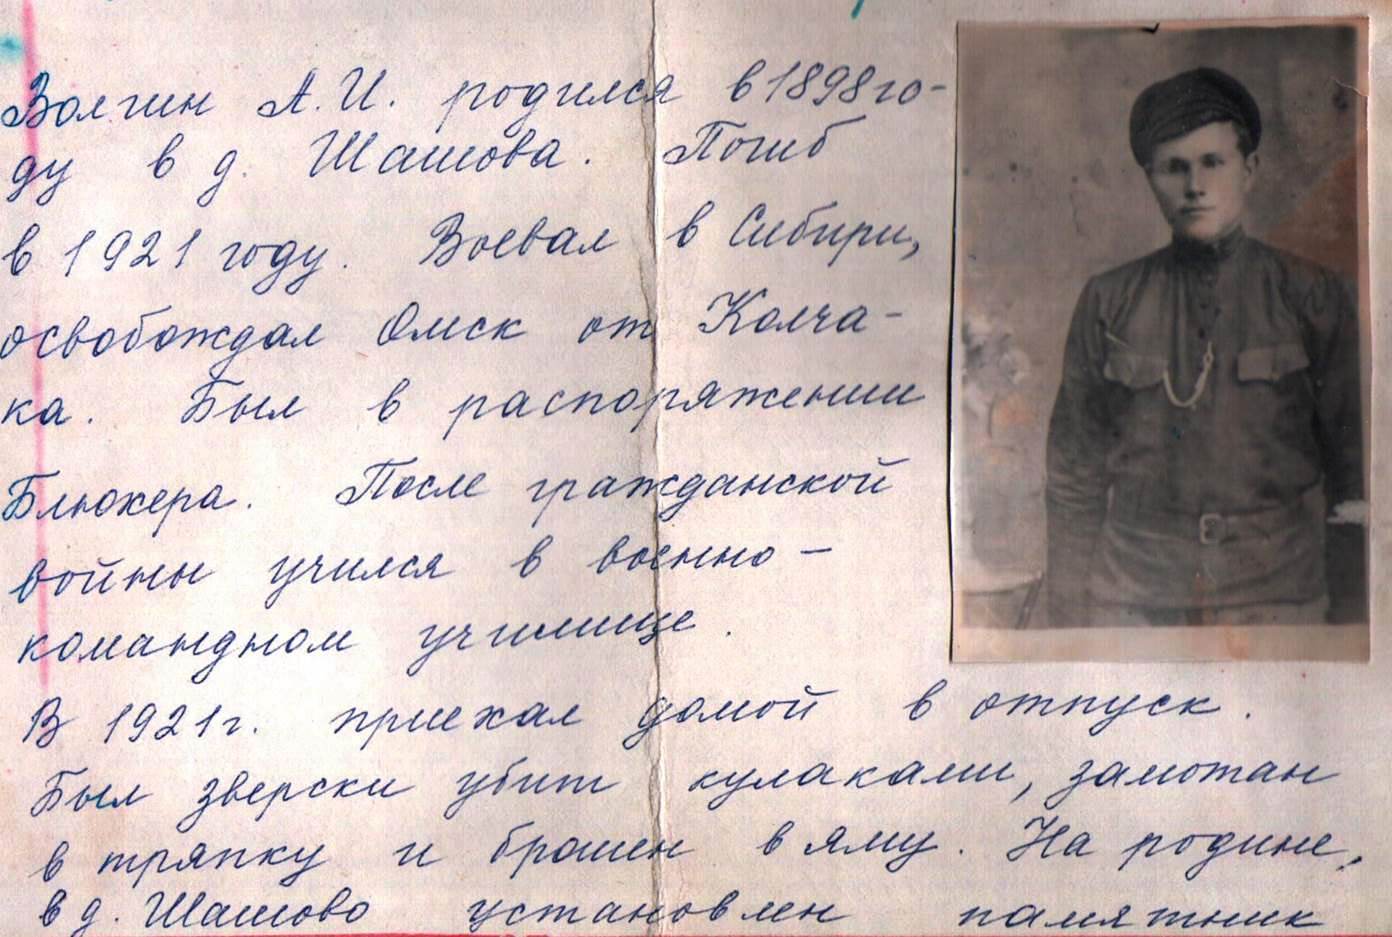 Волгин А.И. родился в 1898 го-
ду в д. Шашова. Погиб
в 1921 году. Воевал в Сибири,
освобождал Омск от Колча-
ка. Был в распоряжении
Блюхера. После гражданской
войны учился в военно-
командном училище.
В 1921г. приехал домой в отпуск.
Был зверски убит кулаками, замотан
в тряпку и брошен в яму. На родине,
в д. Шашово установлен памятник